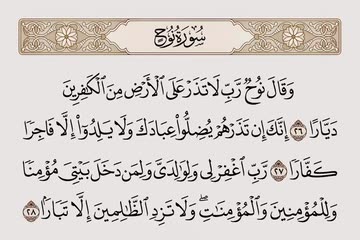 سُورَةُ نُوحٍ
وَقَالَ نُوحٌ رَّبِّ لَا تَذَرْ عَلَى الْأَرْضِ مِنَ الْكَٰفِرِينَ
دَيَّارًا ٢٦ إِنَّكَ إِن تَذَرْهُمْ يُضِلُّوا عِبَادَكَ وَلَا يَلِدُوا إِلَّا فَاجِرًا
كَفَّارًا ٢٧ رَّبِّ اغْفِرْ لِي وَلِوَٰلِدَيَّ وَلِمَن دَخَلَ بَيْتِيَ مُؤْمِنًا
وَلِلْمُؤْمِنِينَ وَالْمُؤْمِنَٰتِ ۖ وَلَا تَزِدِ الظَّالِمِينَ إِلَّا تَبَارًا ٢٨